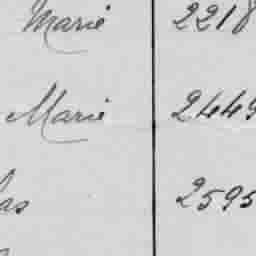 Marie 2218
Marie 2449
las 2595